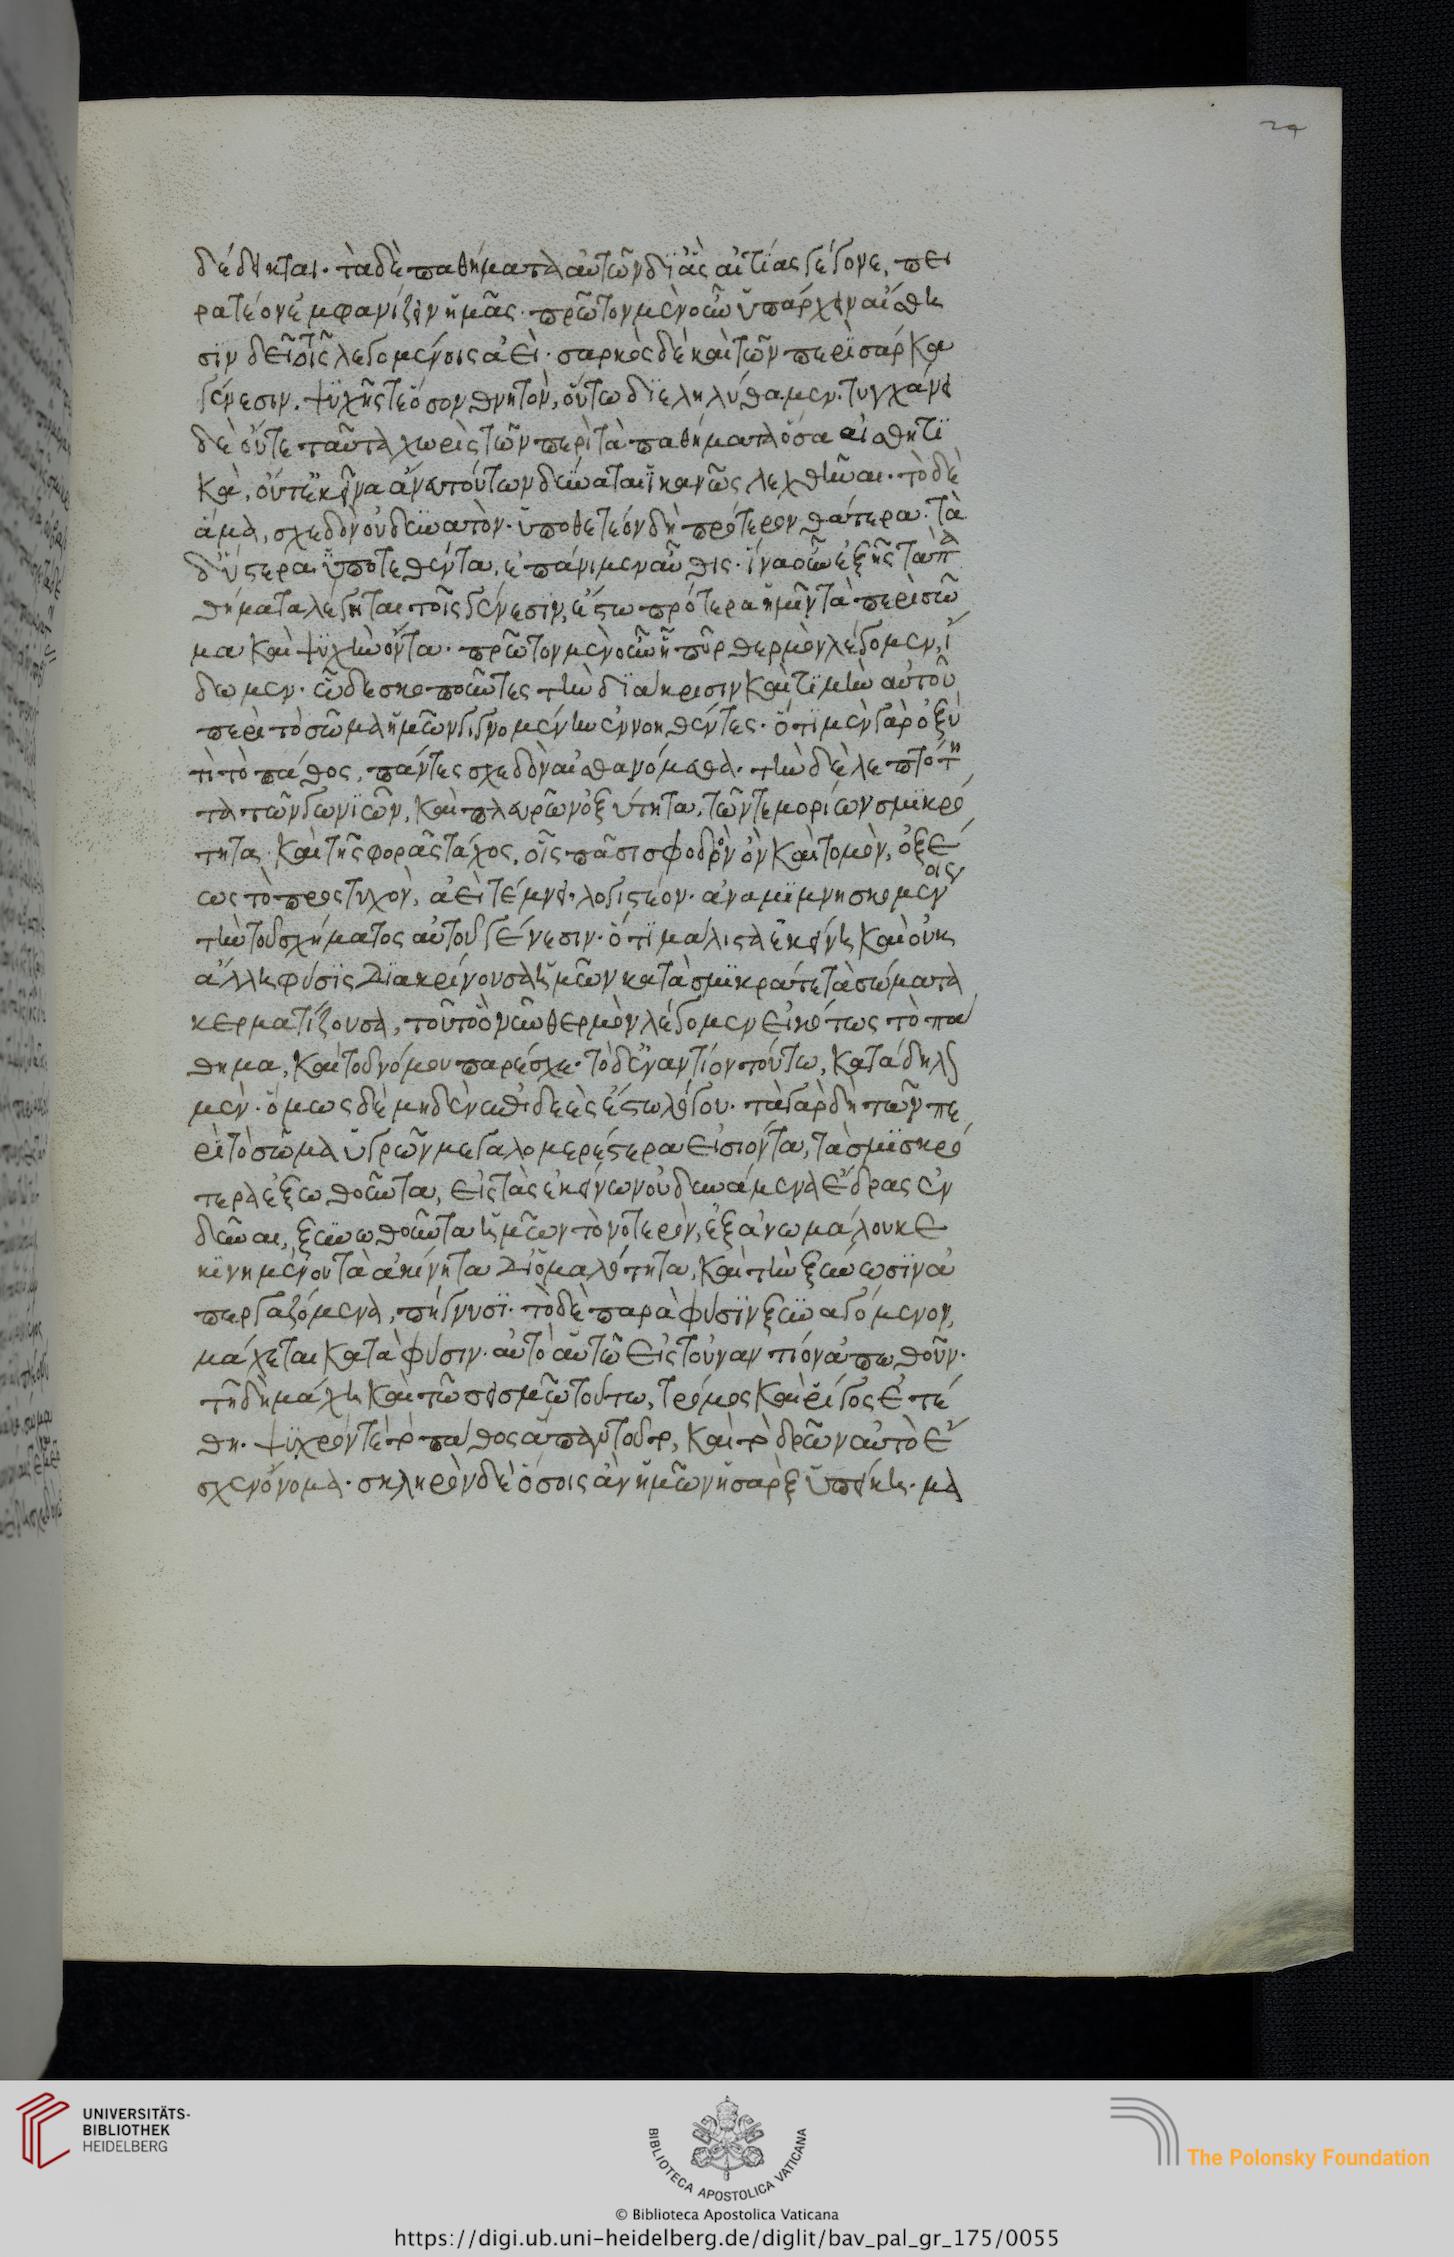 24
δέδεικται· τὰ δὲ παθήματα αὐτῶν δι ἃς αἰτίας γέγονε, πει
ρατέον ἐμφανίζειν ἡμᾶς. πρῶτον μὲν οὖν ὑπάρχειν αἴσθη
σιν δεῖ τοῖς λεγομένοις ἀεὶ· σαρκὸς δὲ καὶ τῶν περὶ σάρκα
γένεσιν. ψυχῆς τε ὅσον θνητὸν, οὔπω διεληλύθαμεν. τυγχάνει
δὲ οὔτε ταῦτα χωρὶς τῶν περὶ τὰ παθήματα ὅσα αἰσθητι
κὰ, οὔτ ἐκεῖνα ἄνευ τούτων δυνατὰ ἱκανῶς λεχθῆναι· τὸ δὲ
ἅμα, σχεδὸν οὐ δυνατὸν· ὑποθετέον δὴ πρότερον θάτερα. τὰ
δ ὕστερα ὑποτεθέντα, ἐπάνιμεν αὖθις. ἵνα οὖν ἑξῆς τὰ πα
θήματα λέγηται τοῖς γένεσιν, ἔστω πρότερα ἡμῖν τὰ περὶ σῶ
μα καὶ ψυχὴν ὄντα· πρῶτον μὲν οὖν ᾗ πῦρ θερμὸν λέγομεν, ἴ
δωμεν· ὧδε σκοποῦντες τὴν διάκρισιν καὶ τιμὴν αὐτοῦ
περὶ τὸ σῶμα ἡμῶν γιγνομένην ἐννοηθέντες. ὅτι μὲν γὰρ ὀξύ
τι τὸ πάθος, πάντες σχεδὸν αἰσθανόμεθα· τὴν δὲ λεπτότη
τα τῶν γωνιῶν, καὶ πλευρῶν ὀξύτητα, τῶν τε μορίων σμικρό
τητα καὶ τῆς φορᾶς τάχος, οἷς πᾶσι σφοδρὸν ὂν καὶ τομὸν, ὀξέ
ως τὸ προστυχὸν, ἀεὶ τέμνει· λογιστέον· ἀναμιμνησκομένοις
τὴν τοῦ σχήματος αὐτοῦ γένεσιν· ὅτι μάλιστα ἐκείνη καὶ οὐκ
ἄλλη φύσις διακρίνουσα ἡμῶν κατὰ σμικρά τε τὰ σώματα
κερματίζουσα, τοῦτο ὃ νῦν θερμὸν λέγομεν εἰκότως τὸ πά
θημα, καὶ τοὔνομα παρέσχε· τὸ δ ἐναντίον τούτω, κατάδηλον
μὲν· ὅμως δὲ μηδὲν ἐπιδεὲς ἔστω λόγου. τὰ γὰρ δὴ τῶν πε
ρὶ τὸ σῶμα ὑγρῶν μεγαλομερέστερα εἰσιόντα, τὰ σμικρό
τερα ἐξωθοῦντα, εἰς τὰς ἐκείνων οὐ δυνάμενα ἕδρας ἐν
δῦναι, ξυνωθοῦντα ἡμῶν τὸ νοτερὸν, ἐξ ἀνωμάλου κε
κινημένου τὰ ἀκίνητα δι ὁμαλότητα, καὶ τὴν ξύνωσιν ἀ
περγαζόμενα, πήγνυσι· τὸ δὲ παρὰ φύσιν ξυναγόμενον,
μάχεται κατὰ φύσιν· αὐτὸ αὑτῶ εἰς τοὐναντίον ἀπωθοῦν·
τῆ δὴ μάχη καὶ τῶ σεισμῶ τούτω, τρόμος καὶ ῥίγος ἐτέ
θη· ψυχρόν τε τὸ πάθος ἅπαν τοῦτο, καὶ τὸ δρῶν αὐτὸ ἔ
σχεν ὄνομα· σκληρὸν δὲ ὅσοις ἂν ἡμῶν ἡ σὰρξ ὑπείκη· μα
UNIVERSITÄTS-
BIBLIOTHEK
HEIDELBERG
BIBLIOTECA APOSTOLICA VATICANA
The Polonsky Foundation
© Biblioteca Apostolica Vaticana
https://digi.ub.uni-heidelberg.de/diglit/bav_pal_gr_175/0055